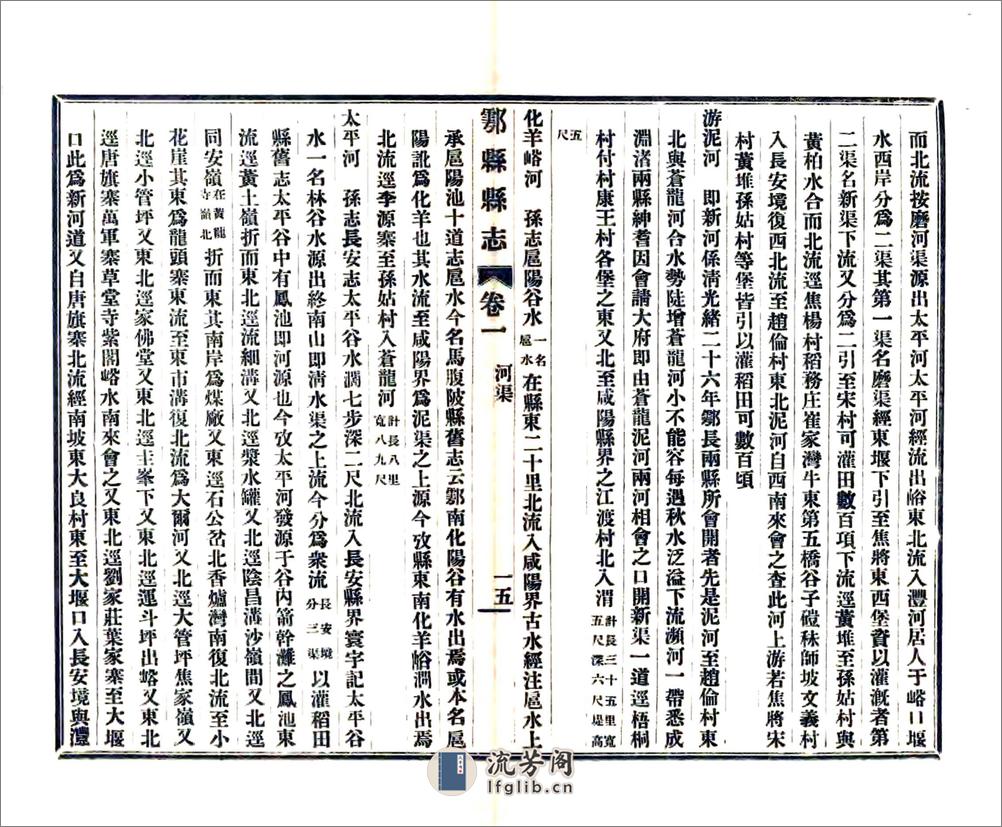 而北流按磨河渠源出太平河太平河經流出峪東北流入灃河居人于峪口堰
水西岸分爲二渠其第一渠名磨渠經東堰下引至焦將東西堡資以灌漑者第
二渠名新渠下流又分爲二引至宋村可灌田數百項下流逕黃堆至孫姑村與
黃柏水合而北流逕焦楊村稻務庄崔家灣牛東第五橋谷子磑秣師坡文義村
入長安境復西北流至趙倫村東北泥河自西南來會之查此河上游若焦將宋
村黃堆孫姑村等堡皆引以灌稻田可數百頃
游泥河 即新河係淸光緒二十六年鄠長兩縣所會開者先是泥河至趙倫村東
北與蒼龍河合水勢陡增蒼龍河小不能容每遇秋水泛溢下流瀕河一帶悉成
淵渚兩縣紳耆因會請大府即由蒼龍泥河兩河相會之口開新渠一道逕梧桐
村付村康王村各堡之東又北至咸陽縣界之江渡村北入渭計長三十五里寬五尺深六尺堤高
五尺
化羊峪河 孫志扈陽谷水一名扈水在縣東二十里北流入咸陽界古水經注扈水上
鄠縣縣志 卷一 河渠 一五
承扈陽池十道志扈水今名馬腹陂縣舊志云鄠南化陽谷有水出焉或本名扈
陽訛爲化羊也其水流至咸陽界爲泥渠之上源今攷縣東南化羊峪澗水出焉
北流逕李源寨至孫姑村入蒼龍河計長八里寬八九尺
太平河 孫志長安志太平谷水濶七步深二尺北流入長安縣界寰宇記太平谷
水一名林谷水源出終南山即淸水渠之上流今分爲衆流長安境分三渠以灌稻田
縣舊志太平谷中有鳳池即河源也今攷太平河發源于谷內箭幹灘之鳳池東
流逕黃土嶺折而東北逕流細溝又北逕漿水罐又北逕陰昌溝沙嶺間又北逕
同安嶺在黃龍寺嶺北折而東其南岸爲煤廠又東逕石公岔北香爐灣南復北流至小
花崖其東爲龍頭寨東流至東市溝復北流爲大爾河又北逕大管坪焦家嶺又
北逕小管坪又東北逕家佛堂又東北逕圭峯下又東北逕運斗坪出峪又東北
逕唐旗寨萬軍寨草堂寺紫閣峪水南來會之又東北逕劉家莊葉家寨至大堰
口此爲新河道又自唐旗寨北流經南坡東大良村東至大堰口入長安境與灃
流芳阁
lfglib.cn